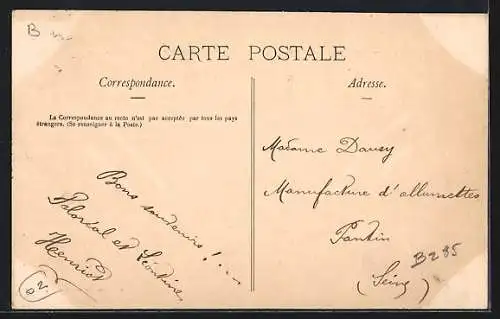 B
CARTE POSTALE
Correspondance.
La Correspondance au recto n'est pas acceptée par tous les pays
étrangers. (Se renseigner à la Poste.)
Bons souvenirs!...
et Léontine
Henriot
Adresse.
Madame Dausy
Manufacture d'allumettes
Pantin
(Seine)
B285